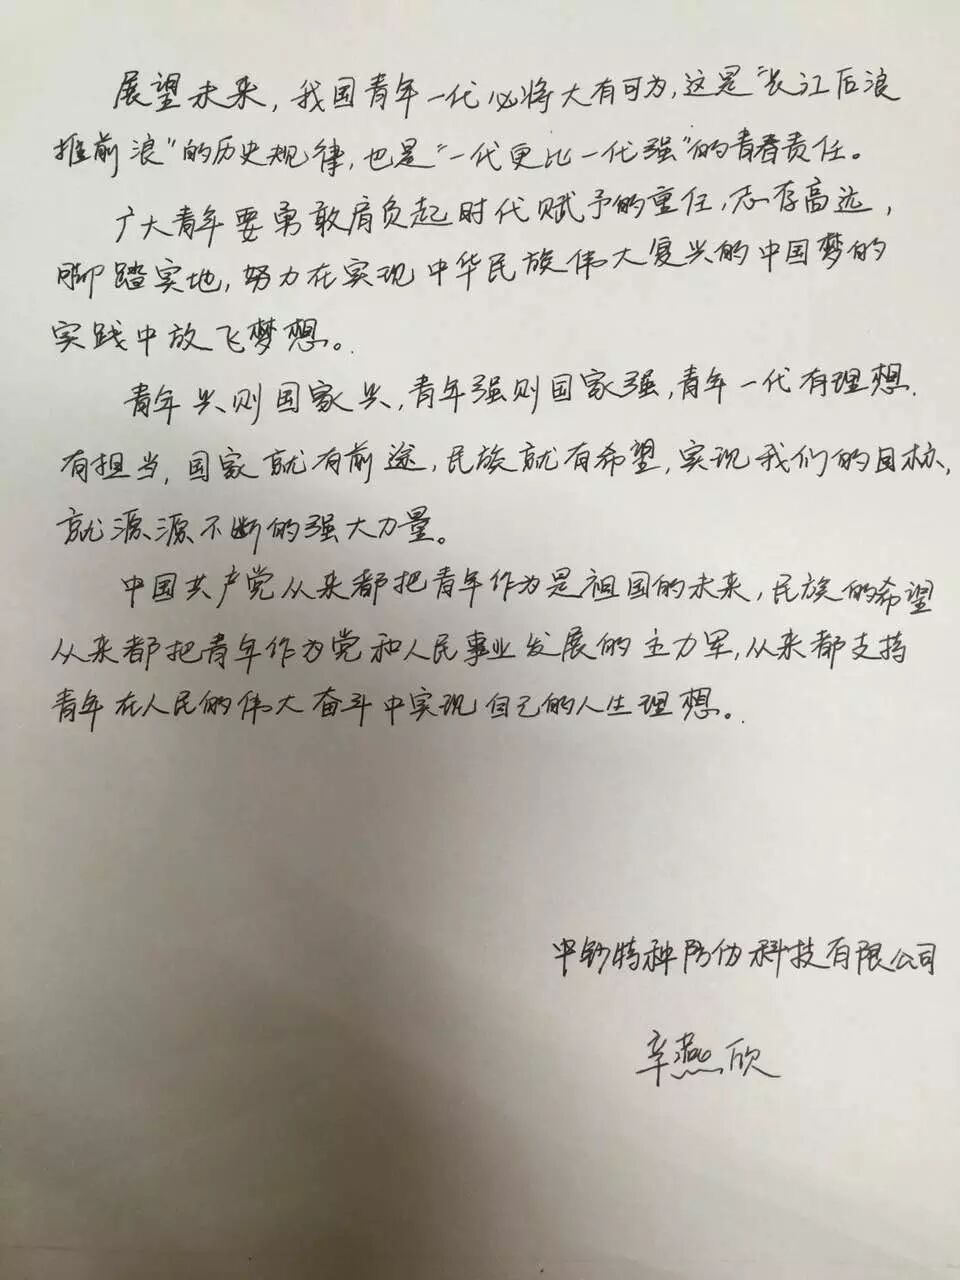 展望未来，我国青年一代必将大有可为，这是“长江后浪
推前浪”的历史规律，也是“一代更比一代强”的青春责任。
广大青年要勇敢肩负起时代赋予的重任，志存高远，
脚踏实地，努力在实现中华民族伟大复兴的中国梦的
实践中放飞梦想。
青年兴则国家兴，青年强则国家强，青年一代有理想．
有担当，国家就有前途，民族就有希望，实现我们的目标，
就源源不断的强大力量。
中国共产党从来都把青年作为是祖国的未来，民族的希望
从来都把青年作为党和人民事业发展的主力军，从来都支持
青年在人民的伟大奋斗中实现自己的人生理想。
中钞特种防伪科技有限公司
辛燕欣